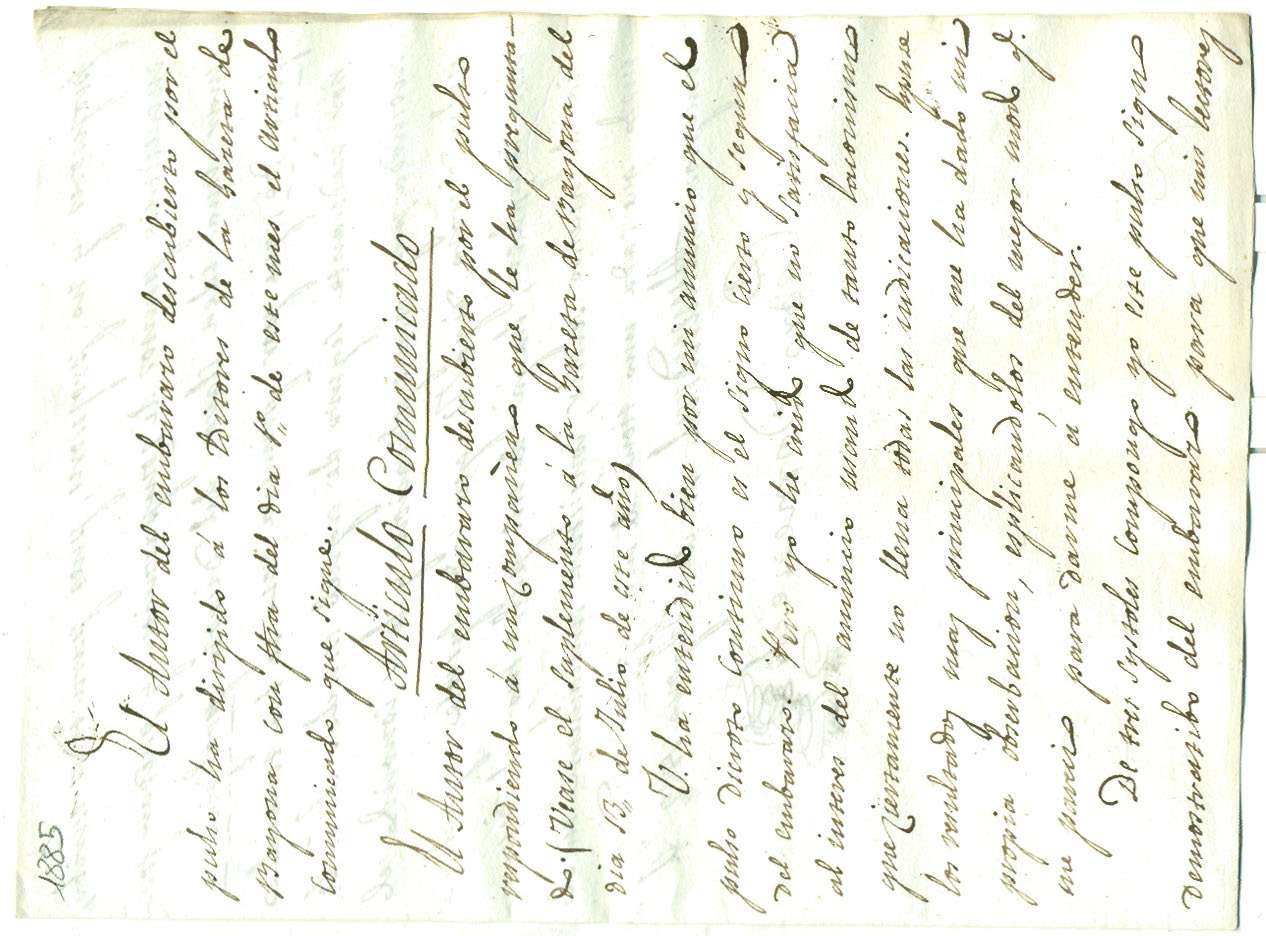 1885
El Autor del embarazo descubierto por el
pulso ha dirijido á los Editores de la Gazeta de
Bayona con fha del dia 1º,, de este mes el articulo
comunicado que sigue.
Articulo Comunicado
El Autor del embarazo descubierto por el pulso
respondiendo á un compañero que le ha pregunta-
do: (Vease el suplemento á la Gazeta de Bayona del
dia 13,, de Julio de este año)
V. ha entendido bien por mi anuncio que el
pulso Dicroto continuo es el signo cierto y seguro
del embarazo: Pero yo he creido que no satisfacia
al interes del anuncio usando de tanto laconismo
que ciertamente no llena todas las indicaciones. Hé aqui
los resultados mas principales que me ha dado mi
propia observacion, esplicandolos del mejor modo q.
me parece para darme á entender.
De tres systoles compongo yo este pulso signo
demostrativo del embarazo para que mis lectores